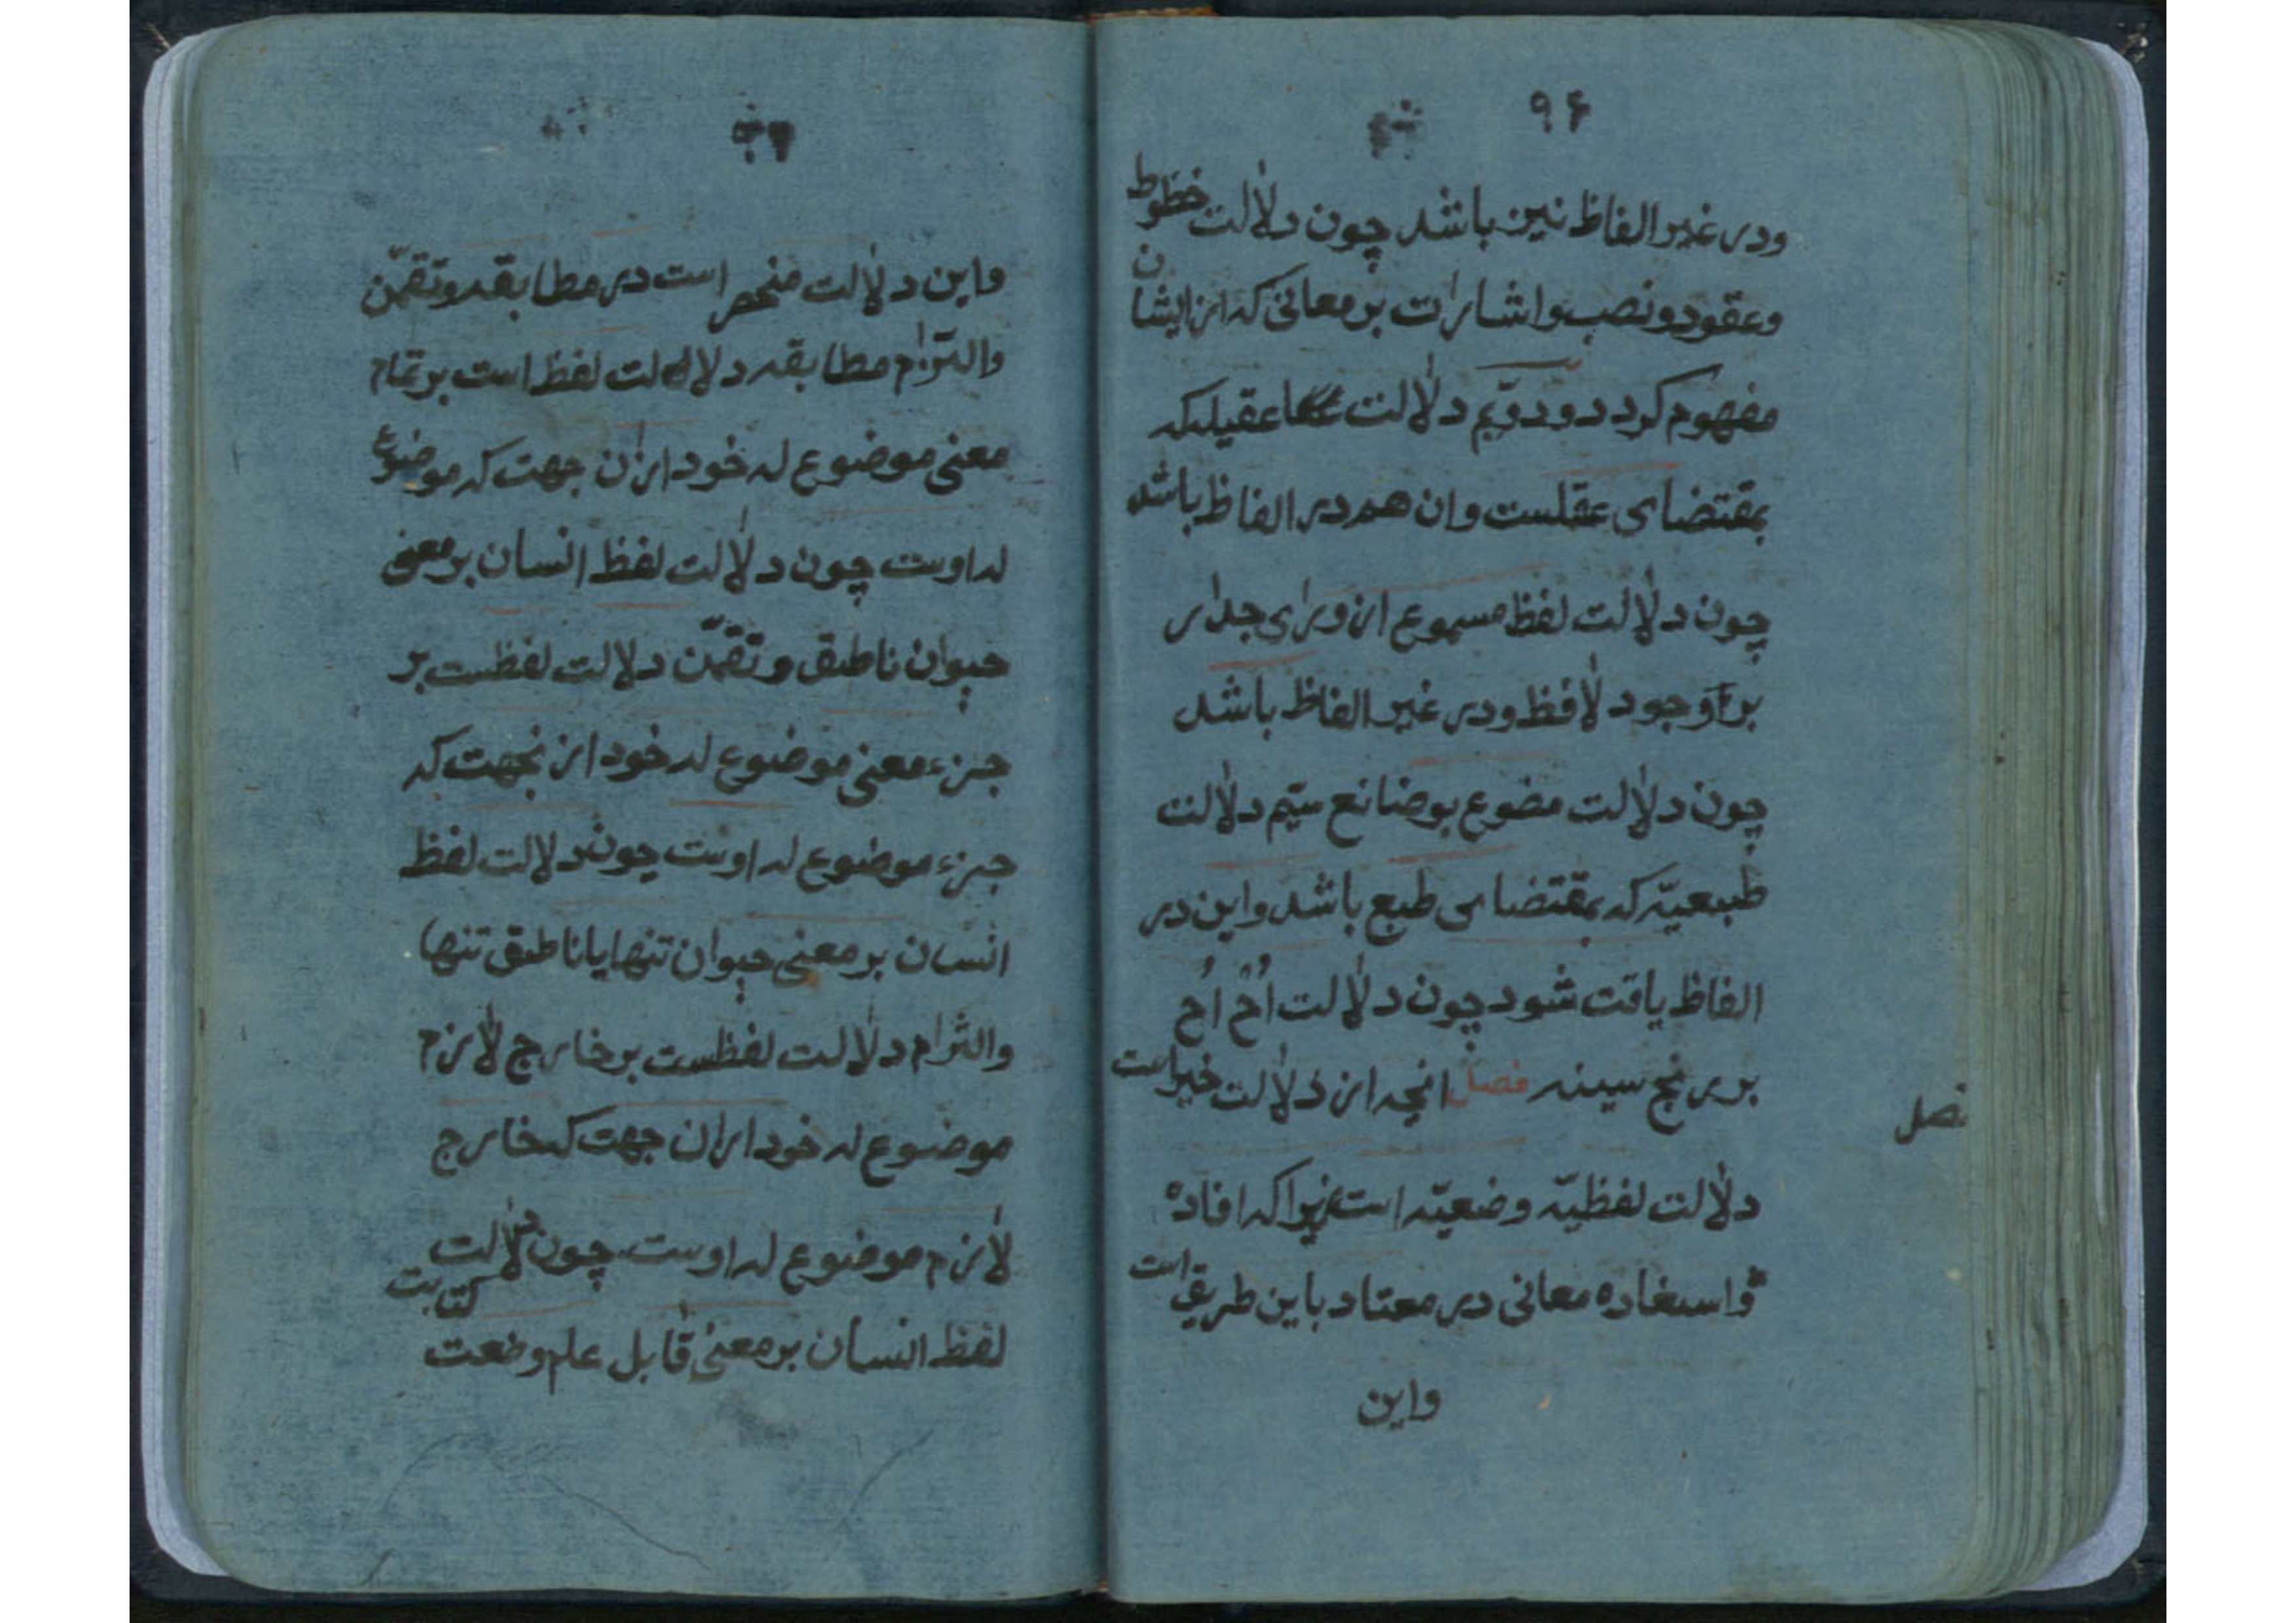 ۹۶
ودر غیر الفاظ نیز باشد چون دلالت خظوط
وعقود ونصب واشارات بر معانی که از ایشان
مفهوم کردد ودویم دلالت عقیلیکه
بمقتضای عقلست وان هم در الفاظ باشد
چون دلالت لفظ مسموع از ورای جدار
بر وجود لافظ ودر غیر الفاظ باشد
چون دلالت مضوع بوضانع سیّم دلالت
طبیعیّه که بمقتضای طبع باشد واین در
الفاظ یافت شود چون دلالت اُخ اُخ
بر رنج سینه فصل انچه از دلالت خیر است
فصل
دلالت لفظیّه وضعیّه است زیرا که افاده
واستفاده معانی در معتاد باین طریق است
واین
واین دلالت منحصر است در مطابقه وتضمّن
والتزام مطابقه دلالت لفظ است بر تمام
معنی موضوع له خود ازان جهت که موضوع
له اوست چون دلالت لفظ انسان بر معنی
حیوان ناطق وتضمّن دلالت لفظست بر
جزء معنی موضوع له خود ازنجهت که
جزء موضوع له اوست چون دلالت لفظ
انسان بر معنی حیوان تنها یا ناطق تنها
والتزام دلالت لفظست بر خارج لازم
موضوع له خود ازان جهت که خارج
لازم موضوع له اوست چون دلالت
لفظ انسان بر معنی قابل علم وضعت کتابت